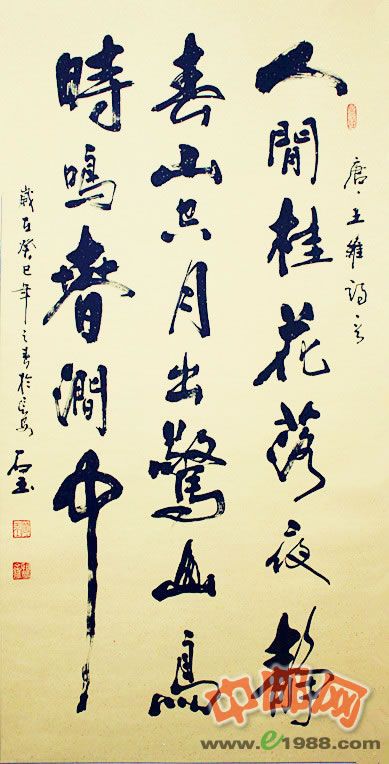 唐·王維詩
人閒桂花落夜靜
春山空月出驚山鳥
時鳴春澗中
歲在癸巳年之春於長安
石玉
www.e1988.com